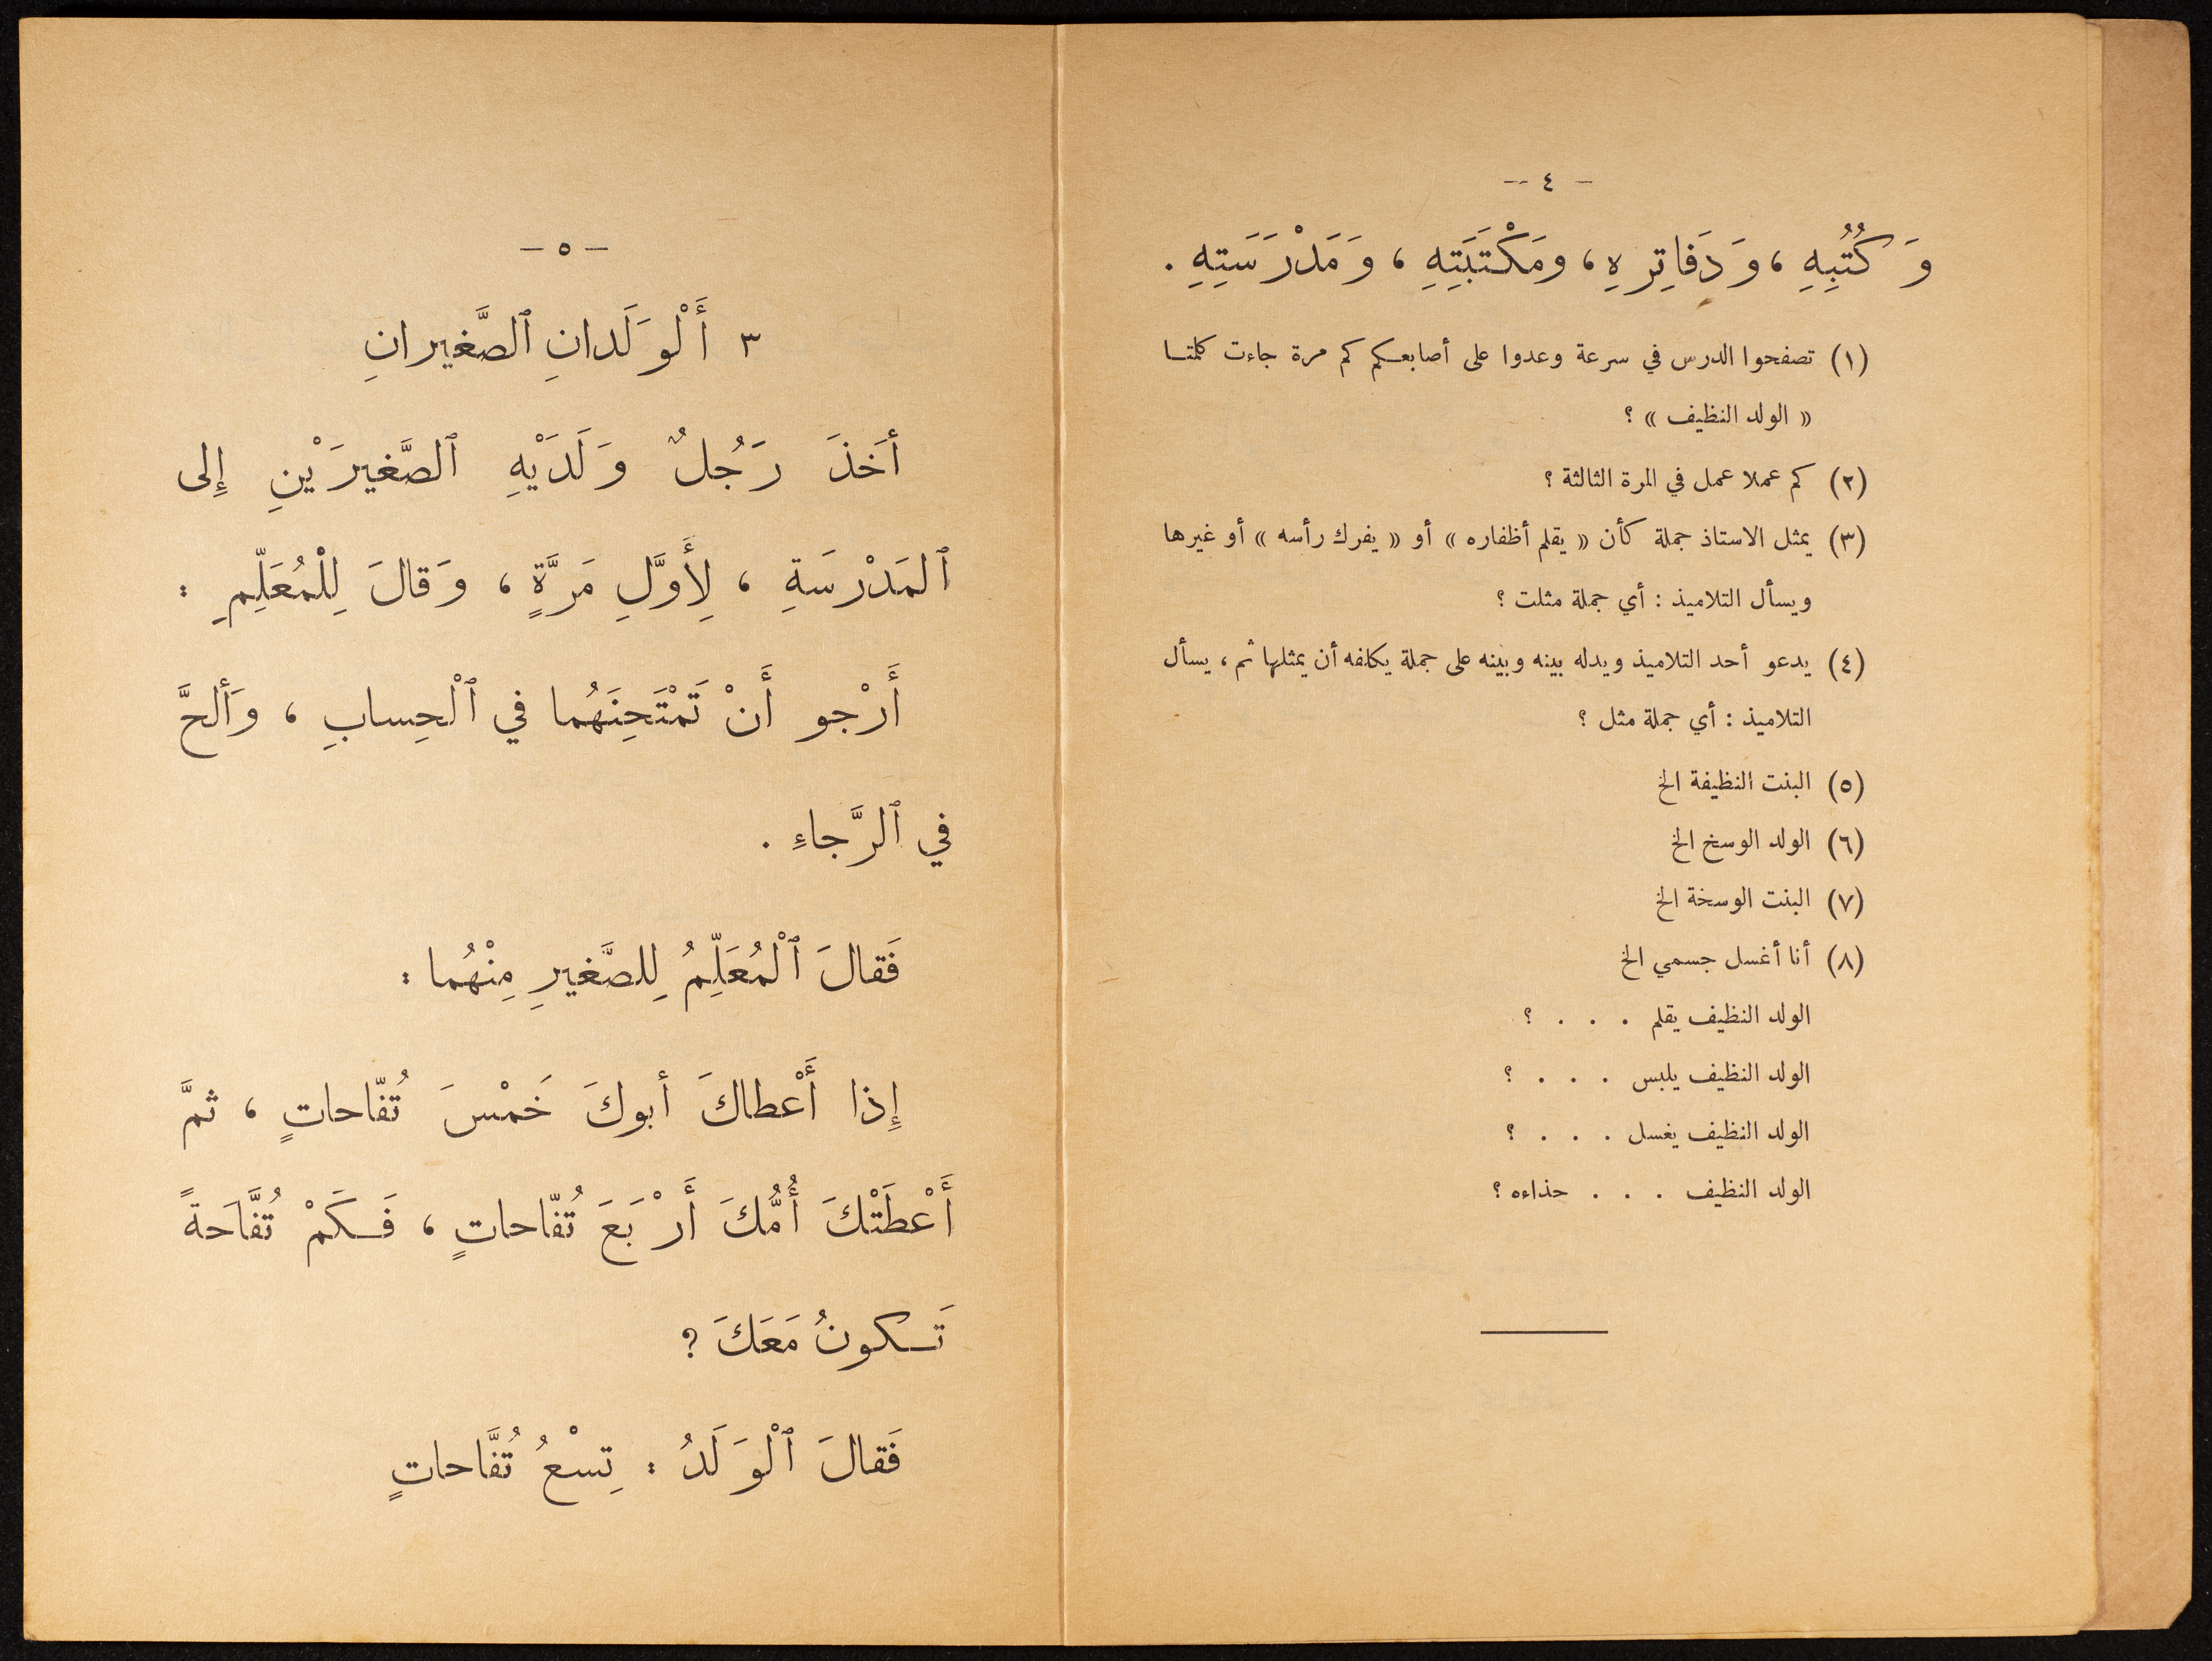 - ٤ -
وَ كُتُبِهِ ، وَ دَفاتِرِهِ ، ومَكْتَبَتِهِ ، وَ مَدْرَسَتِهِ .
(١) تصفحوا الدرس في سرعة وعدوا على أصابعكم كم مرة جاءت كلمتا
« الولد النظيف » ؟
(٢) كم عملا عمل في المرة الثالثة ؟
(٣) يمثل الاستاذ جملة كأن « يقلم أظفاره » أو « يفرك رأسه » أو غيرها
ويسأل التلاميذ : أي جملة مثلت ؟
(٤) يدعو أحد التلاميذ ويدله بينه وبينه على جملة يكلفه أن يمثلها ثم ، يسأل
التلاميذ : أي جملة مثل ؟
(٥) البنت النظيفة الخ
(٦) الولد الوسخ الخ
(٧) البنت الوسخة الخ
(٨) أنا أغسل جسمي الخ
الولد النظيف يقلم . . . ؟
الولد النظيف يلبس . . . ؟
الولد النظيف يغسل . . . ؟
الولد النظيف . . . حذاءه ؟
- ٥ -
٣ أَلْوَلَدانِ ٱلصَّغيرانِ
أخَذَ رَجُلٌ وَلَدَيْهِ ٱلصَّغيرَيْنِ إِلى
ٱلمَدْرسَةِ ، لِأَوَّلِ مَرَّةٍ ، وَقالَ لِلْمُعَلِّمِ :
أَرْجو أَنْ تَمْتَحِنَهُما في ٱلْحِسابِ ، وَألحَّ
في ٱلرَّجاءِ .
فَقالَ ٱلْمُعَلِّمُ لِلصَّغيرِ مِنْهُما :
إِذا أَعْطاكَ أبوكَ خَمْسَ تُفّاحاتٍ ، ثمَّ
أَعْطَتْكَ أُمُّكَ أَرْبَعَ تُفّاحاتٍ ، فَكَمْ تُفَّاحَةً
تَكونُ مَعَكَ ؟
فَقالَ ٱلْوَلَدُ : تِسْعُ تُفَّاحاتٍ